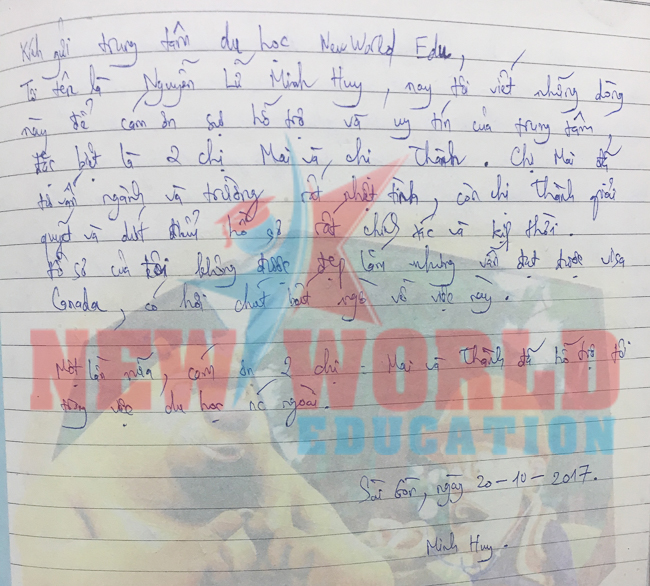 Kính gửi trung tâm du học New World Edu,
Tôi tên là Nguyễn Lữ Minh Huy, nay tôi viết những dòng
này để cám ơn sự hỗ trợ và uy tín của trung tâm,
đặc biệt là 2 chị Mai và chị Thành. Chị Mai đã
tư vấn ngành và trường rất nhiệt tình, còn chị Thành giải
quyết và hồ sơ rất chính xác và kịp thời.
Hồ sơ của tôi không được đẹp lắm nhưng vẫn đạt được visa
Canada, có hơi chút bất ngờ về việc này.
Một lần nữa, cám ơn 2 chị: Mai và Thành đã hỗ trợ tôi
trong việc du học nc ngoài.
Sài Gòn, ngày 20-10-2017.
Minh Huy.
NEW WORLD
EDUCATION